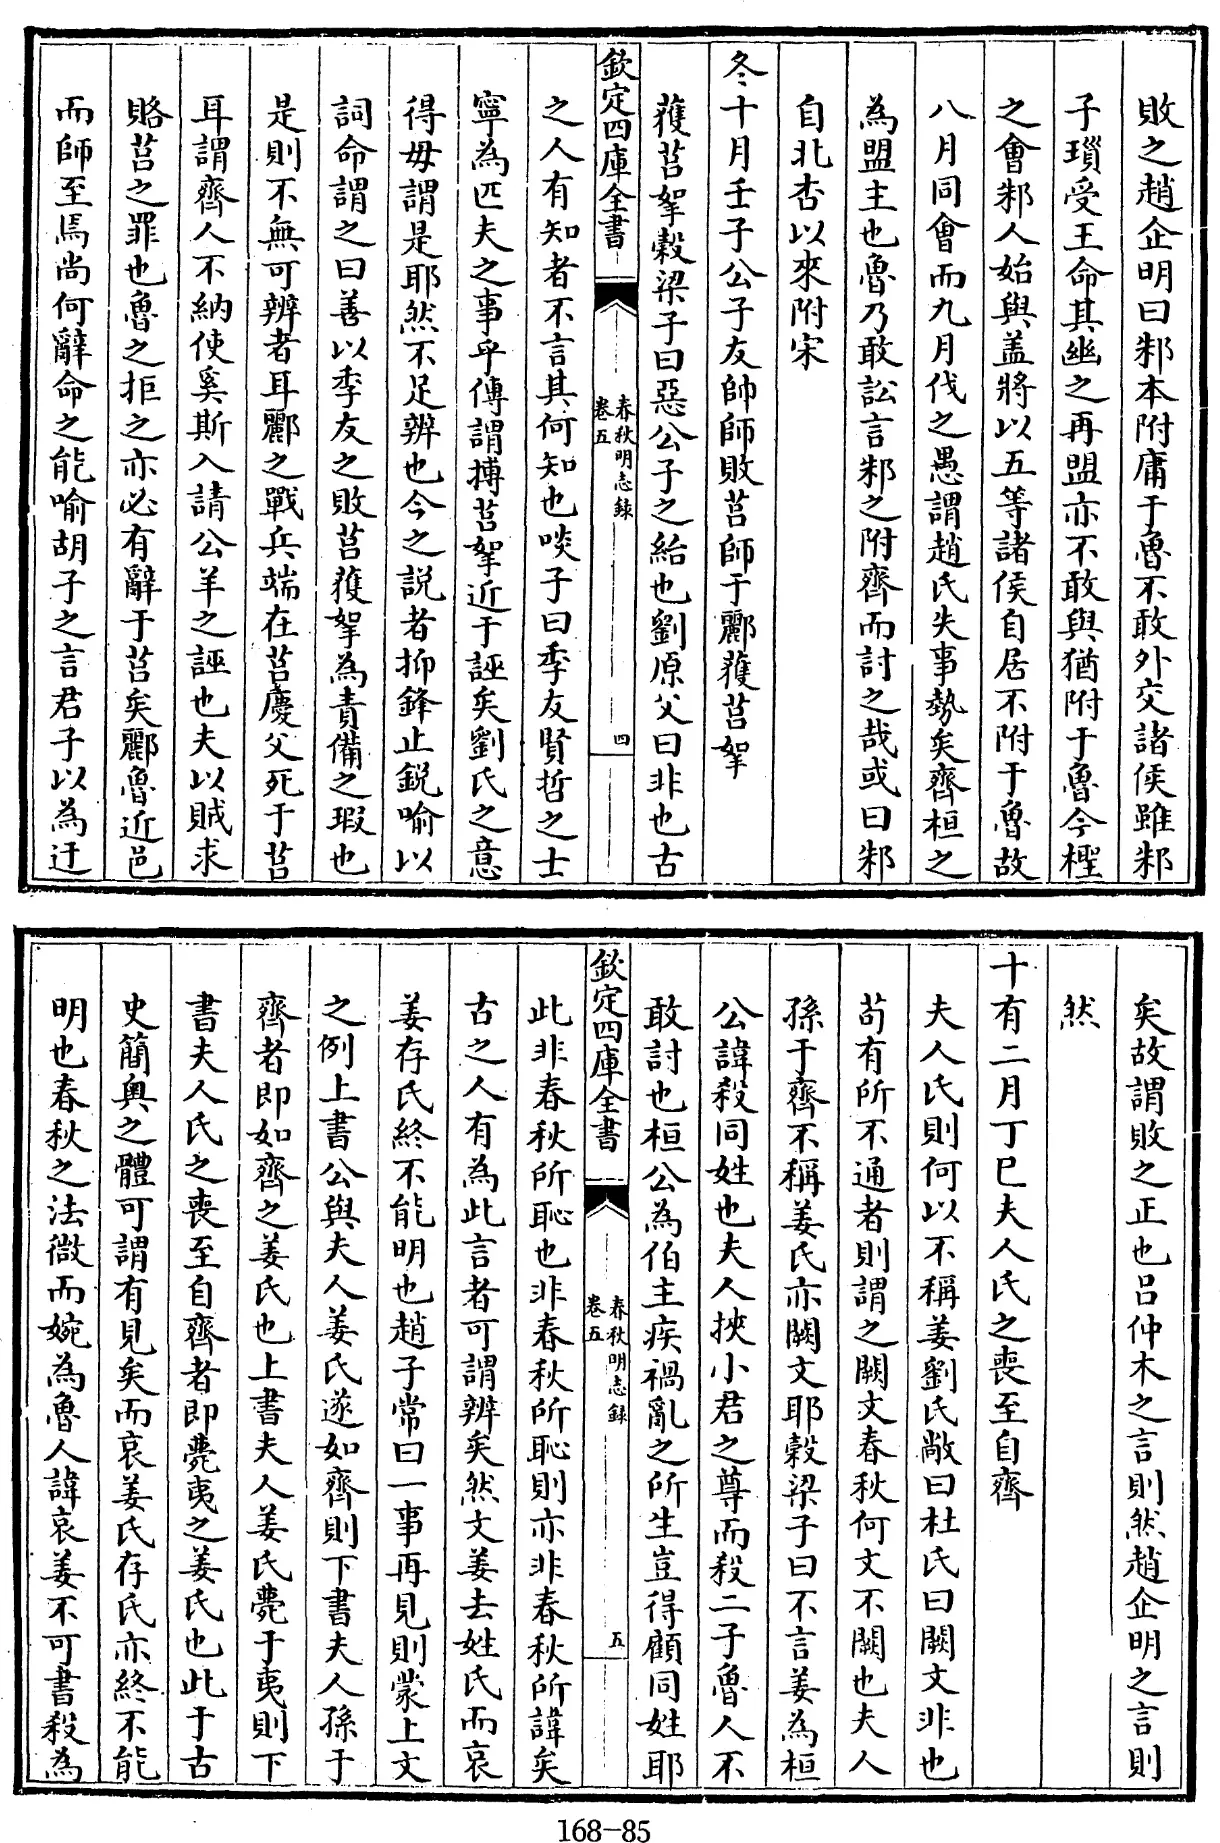 敗之趙企明曰邾本附庸于魯不敢外交諸侯雖邾
子瑣受王命其幽之再盟亦不敢與猶附于魯今檉
之會邾人始與盖將以五等諸侯自居不附于魯故
八月同會而九月伐之愚謂趙氏失事勢矣齊桓之
為盟主也魯乃敢訟言邾之附齊而討之哉或曰邾
自北杏以來附宋
冬十月壬子公子友帥師敗莒師于酈獲莒挐
獲莒挐穀梁子曰惡公子之紿也劉原父曰非也古
欽定四庫全書
春秋明志録
卷五
四
之人有知者不言其何知也啖子曰季友賢哲之士
寧為匹夫之事乎傳謂搏莒挐近于誣矣劉氏之意
得毋謂是耶然不足辨也今之説者抑鋒止鋭喻以
詞命謂之曰善以季友之敗莒獲挐為責備之瑕也
是則不無可辨者耳酈之戰兵端在莒慶父死于莒
耳謂齊人不納使奚斯入請公羊之誣也夫以賊求
賂莒之罪也魯之拒之亦必有辭于莒矣酈魯近邑
而師至焉尚何辭命之能喻胡子之言君子以為迂
矣故謂敗之正也吕仲木之言則然趙企明之言則
然
十有二月丁巳夫人氏之喪至自齊
夫人氏則何以不稱姜劉氏敞曰杜氏曰闕文非也
茍有所不通者則謂之闕文春秋何文不闕也夫人
孫于齊不稱姜氏亦闕文耶穀梁子曰不言姜為桓
公諱殺同姓也夫人挾小君之尊而殺二子魯人不
敢討也桓公為伯主疾禍亂之所生豈得顧同姓耶
欽定四庫全書
春秋明志録
卷五
五
此非春秋所恥也非春秋所恥則亦非春秋所諱矣
古之人有為此言者可謂辨矣然文姜去姓氏而哀
姜存氏終不能明也趙子常曰一事再見則蒙上文
之例上書公與夫人姜氏遂如齊則下書夫人孫于
齊者即如齊之姜氏也上書夫人姜氏薨于夷則下
書夫人氏之喪至自齊者即薨夷之姜氏也此于古
史簡奧之體可謂有見矣而哀姜氏存氏亦終不能
明也春秋之法微而婉為魯人諱哀姜不可書殺為
168-85